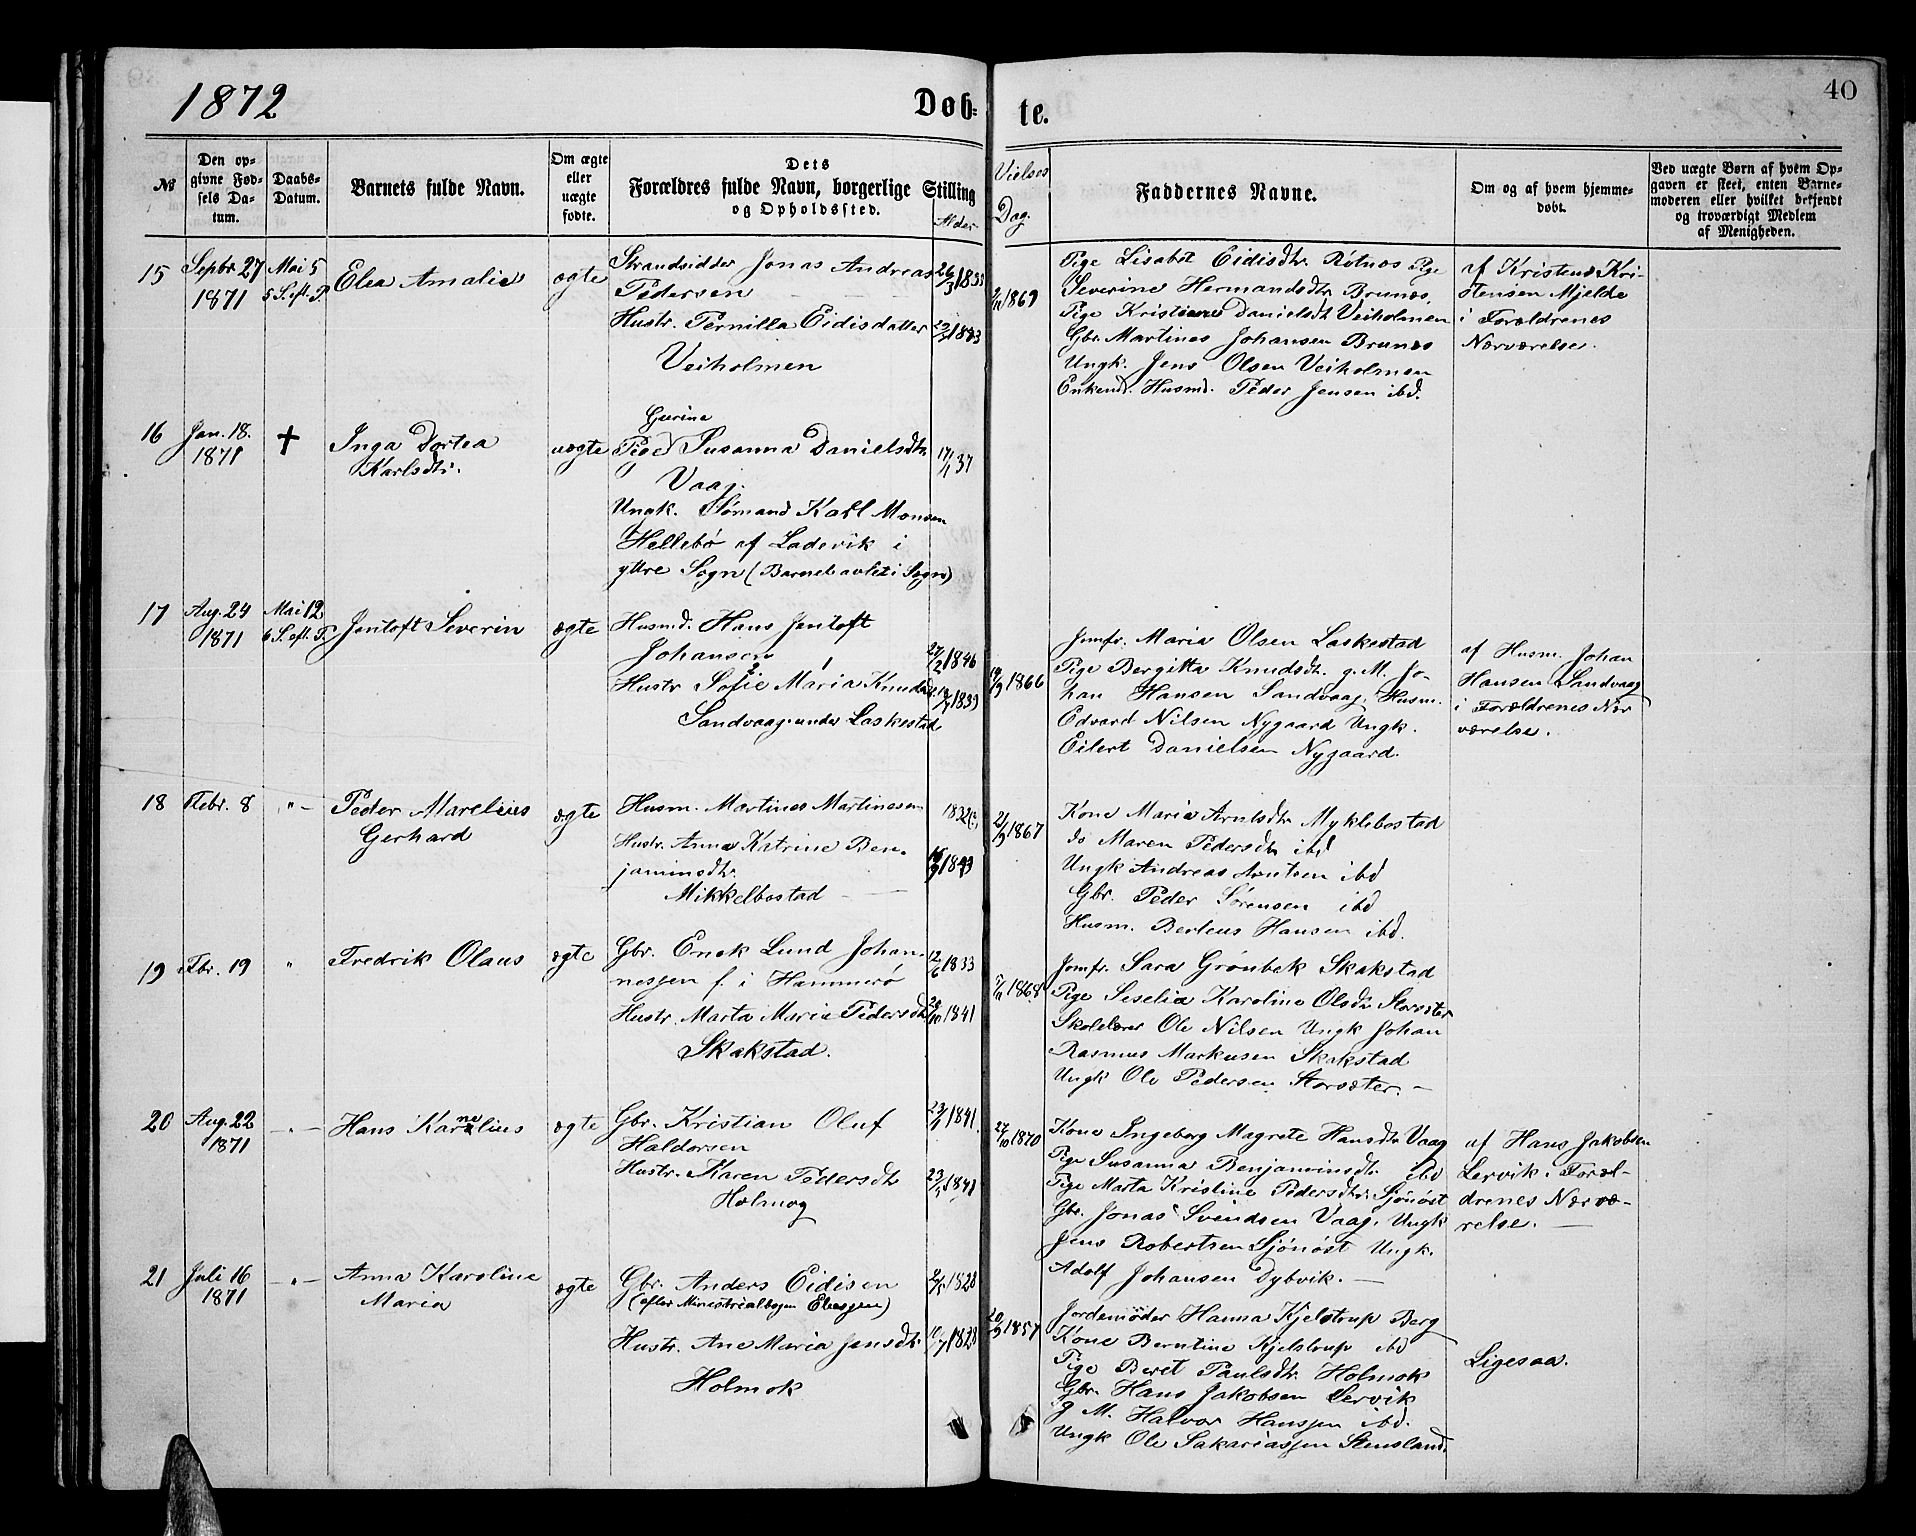 1872
Døb-
te.
40
№
Den op-
givne Fød-
sels Da-
tum.
Daabs-
Datum.
Barnets fulde Navn.
Om ægte
eller
uægte
fødte.
Dets
Forældres fulde Navn, borgerlige Stilling
og Opholdssted.
Alder
Vielses
Dag.
Faddernes Navne.
Om og af hvem hjemme-
døbt.
Ved uægte Børn af hvem Op-
gaven er skeet, enten Barne-
moderen eller hvilket bekjendt
og troværdigt Medlem
af Menigheden.
15
Septbr. 27
1871
Mai 5
5 S. eft. P.
Elea Amalie
ægte
Strandsidder Jonas Andreas
Pedersen
Hustr. Pernilla Eidisdatter
Veiholmen
1869
Pige Lisabet Eidisdtr. Rotnes Pige
Severine Hermandsdtr Brunæs,
Pige Kristiane Danielsdt Veiholmen
Gbr. Martines Johansen Brunæs
Ungk. Jens Olsen Veiholmen
Enkemd. Husmd. Peder Jensen ibd.
af Kristens Kri-
stensen Mjelde
i Forældrenes
Nærværelse.
16
Jan. 18.
1871
†
Inga Dortea
Karlsdtr.
uægte
Gurine
Pige Susanna Danielsdtr
Vaag.
Ungk. Sømand Karl Monsen
Hellebø af Ladevik i
ytre Sogn (Barnet avlet i Sogn)
17/1 37
17
Aug. 24
1871
Mai 12
6 S. eft. P.
Jentoft Severin
ægte
Husmd. Hans Jentoft
Johansen
Hustr Sofie Maria Knudsd
Sandvaag under Laskestad
27/2 1846
1839
19/9 1866
Jomfr. Maria Olsen Laskestad
Pige Bergitta Knudsdt. g. M. Jo-
han Hansen Sandvaag, Husm.
Edvard Nilsen Nygaard Ungk.
Eilert Danielsen Nygaard.
af Husm. Johan
Hansen Sandvaag
i Forældrenes Nær
værelse.
18
Febr. 8
-"-
Peder Marelius
Gerhard
ægte
Husm. Martines Martinesen
Hustr. Anna Katrine Ben-
jaminsdtr.
Mikkelbostad
1832
1843
21/9 1867
Kone Maria Arntsdtr Myklebostad
do Maren Pedersdtr ibd
Ungk Andreas Arntsen ibd
Gbr. Peder Sørensen ibd
Husm. Berteus Hansen ibd.
19
Fbr. 19
"
Fredrik Olaus
ægte
Gbr. Enok Lund Johan-
nessen f. i Hammerø
Hustr. Marta Marie Pedersdtr
Skakstad.
12/6 1833
1841
1868
Jomfr. Sara Grønbek Skakstad
Pige Seselia Karoline Olsdtr Storseter
Skolelærer Ole Nilsen Ungk Johan
Rasmus Markusen Skakstad
Ungk Ole Pedersen Storsæter.
20
Aug. 22
1871
-"-
Hans Karnelius
ne
ægte
Gbr. Kristian Oluf
Haldorsen
Hustr. Karen Pedersdtr
Holmog
1841
27/10 1870
Kone Ingeborg Magrete Hansdtr Vaag
Pige Susanna Benjaminsdtr ibd
Pige Marta Kristine Pedersdtr. Sjønøst
Gbr. Jonas Svendsen Vaag. Ungk
Jens Robertsen Sjønøst Ungk.
Adolf Johansen Dybvik.
af Hans Jakobsen
Lervik i Foræl-
drenes Nærvæ-
relse.
21
Juli 16
1871
-"-
Anna Karoline
Maria
ægte
Gbr. Anders Eidisen
(efter Ministerialbogen Eliesen)
Hustr. Ane Maria Jensdtr.
Holmok
1828
1828
20/9 1857
Jordemoder Hanna Kjelstrup Berg
Kone Berntine Kjelstrup ibd
Pige Beret Paulsdtr. Holmok
Gbr. Hans Jakobsen Lervik
g M. Halvor Hanssen ibd.
Ungk Ole Sakariassen Stensland.
Ligesaa.